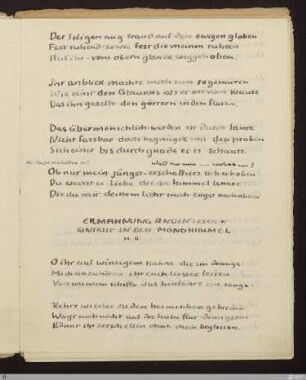 Der Seligen aug stand auf den ewigen globen
Fest ruhend · so wie fest die meinen ruhten
Auf ihr · vom obern glanze weggehoben.
Ihr anblick machte mich zum so gemuten
Wie einst den Glaukus als er ass vom kraute
Das ihn gesellte den göttern in den fluten.
Das übermenschlich-werden ist durch laute
Nicht fassbar doch begnüge mit den proben
Sich einer bis durch gnade er es schaute.
Ob nur mein jüngst-erschaffnes sich erhoben
Du weisst es Liebe die die himmel lenket
Die du mit deinem licht mich zogst nach oben
ERMAHNUNG AN DEN LESER ·
EINTRITT IN DEN MONDHIMMEL
II
O ihr auf winzigem kahne die im drange
Mich anzuhören ihr euch liesset leiten
Von meinem schiffe das hinfährt im sange:
Kehrt wieder zu den heimischen gebieten
Wagt euch nicht auf die hohe flut ·
Könnt ihr zerschellen ohne mein begleiten.